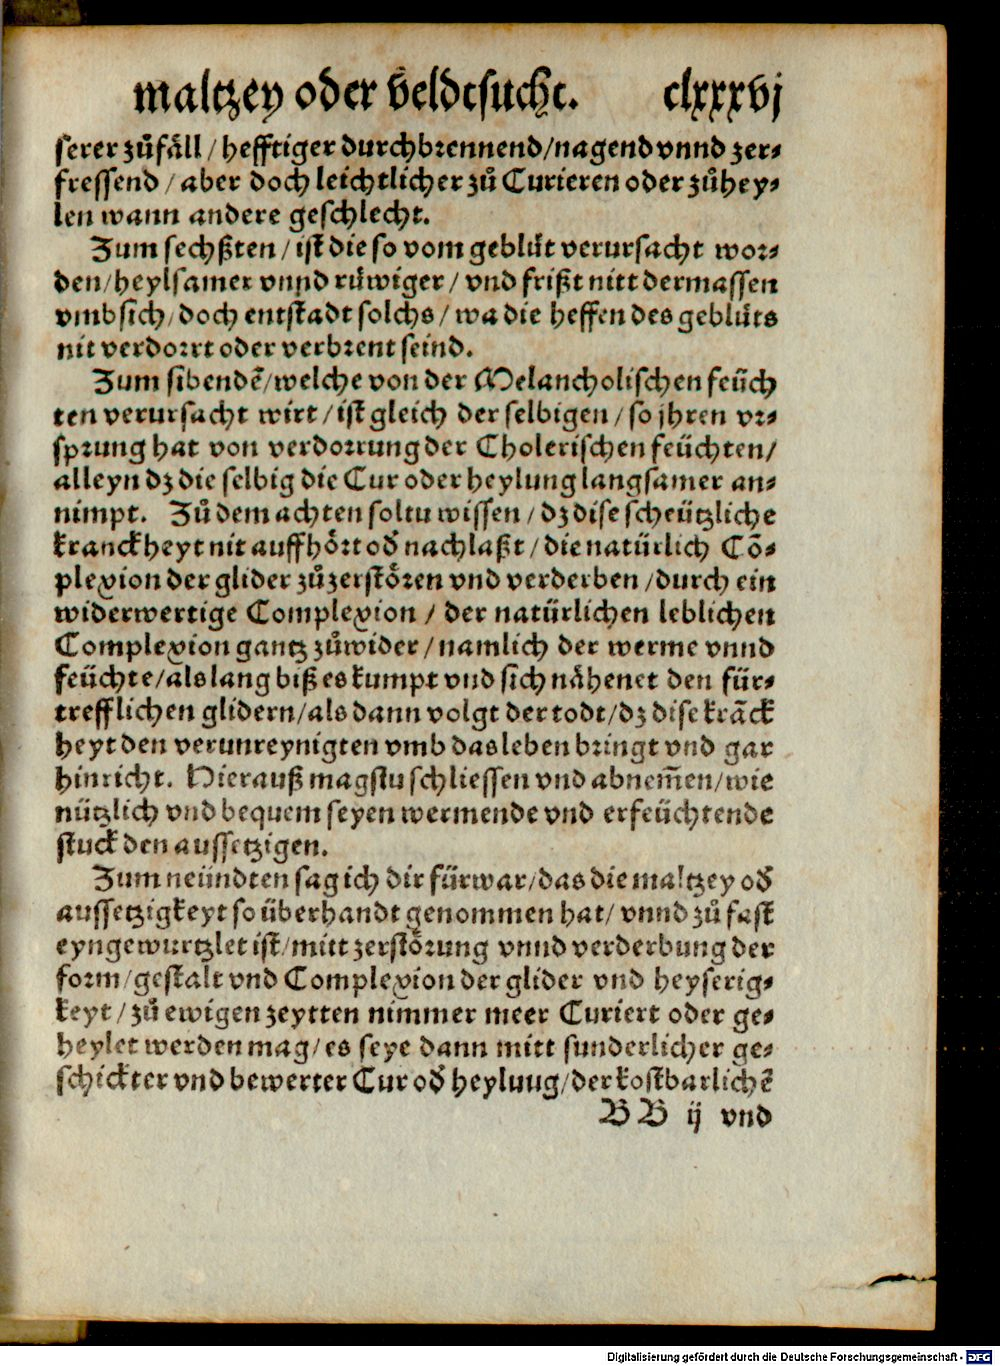 maltzey oder veldtsucht. clxxxvj
serer zůfäll / hefftiger durchbrennend/nagend vnnd zer⸗
fressend / aber doch leichtlicher zů Curieren oder zů hey⸗
len wann andere geschlecht.
Zum sechßten / ist die so vom geblüt verursacht wor⸗
den/heylsamer vnnd rüwiger / vnd frißt nitt dermassen
vmb sich/ doch entstadt solchs / wa die heffen des geblüts
nit verdorrt oder verbrent seind.
Zum sibendē/welche von der Melancholischen feüch
ten verursacht wirt / ist gleich der selbigen / so jhren vr⸗
sprung hat von verdorrung der Cholerischen feüchten/
alleyn dz die selbig die Cur oder heylung langsamer an⸗
nimpt. Zů dem achten soltu wissen / dz dise scheützliche
kranckheyt nit auffhört oď nachlaßt / die natürlich Cō⸗
plexion der glider zů zerstören vnd verderben /durch ein
widerwertige Complexion / der natürlichen leblichen
Complexion gantz zůwider / namlich der werme vnnd
feüchte/als lang biß es kumpt vnd sich nähenet den für⸗
trefflichen glidern/als dann volgt der todt/dz dise krāck
heyt den verunreynigten vmb das leben bringt vnd gar
hinricht. Hierauß magstu schliessen vnd abnem̄en/wie
nützlich vnd bequem seyen wermende vnd erfeüchtende
stuck den aussetzigen.
Zum neündten sag ich dir fürwar/das die maltzey oď
aussetzigkeyt so überhandt genommen hat/ vnnd zů fast
eyngewurtzlet ist/mitt zerstörung vnnd verderbung der
form/gestalt vnd Complexion der glider vnd heyserig⸗
keyt / zů ewigen zeytten nimmer meer Curiert oder ge⸗
heylet werden mag/es seye dann mitt sunderlicher ge⸗
schickter vnd bewerter Cur oď heylung/der kostbarlichē
BB ij vnd
Digitalisierung gefördert durch die Deutsche Forschungsgemeinschaft - DFG